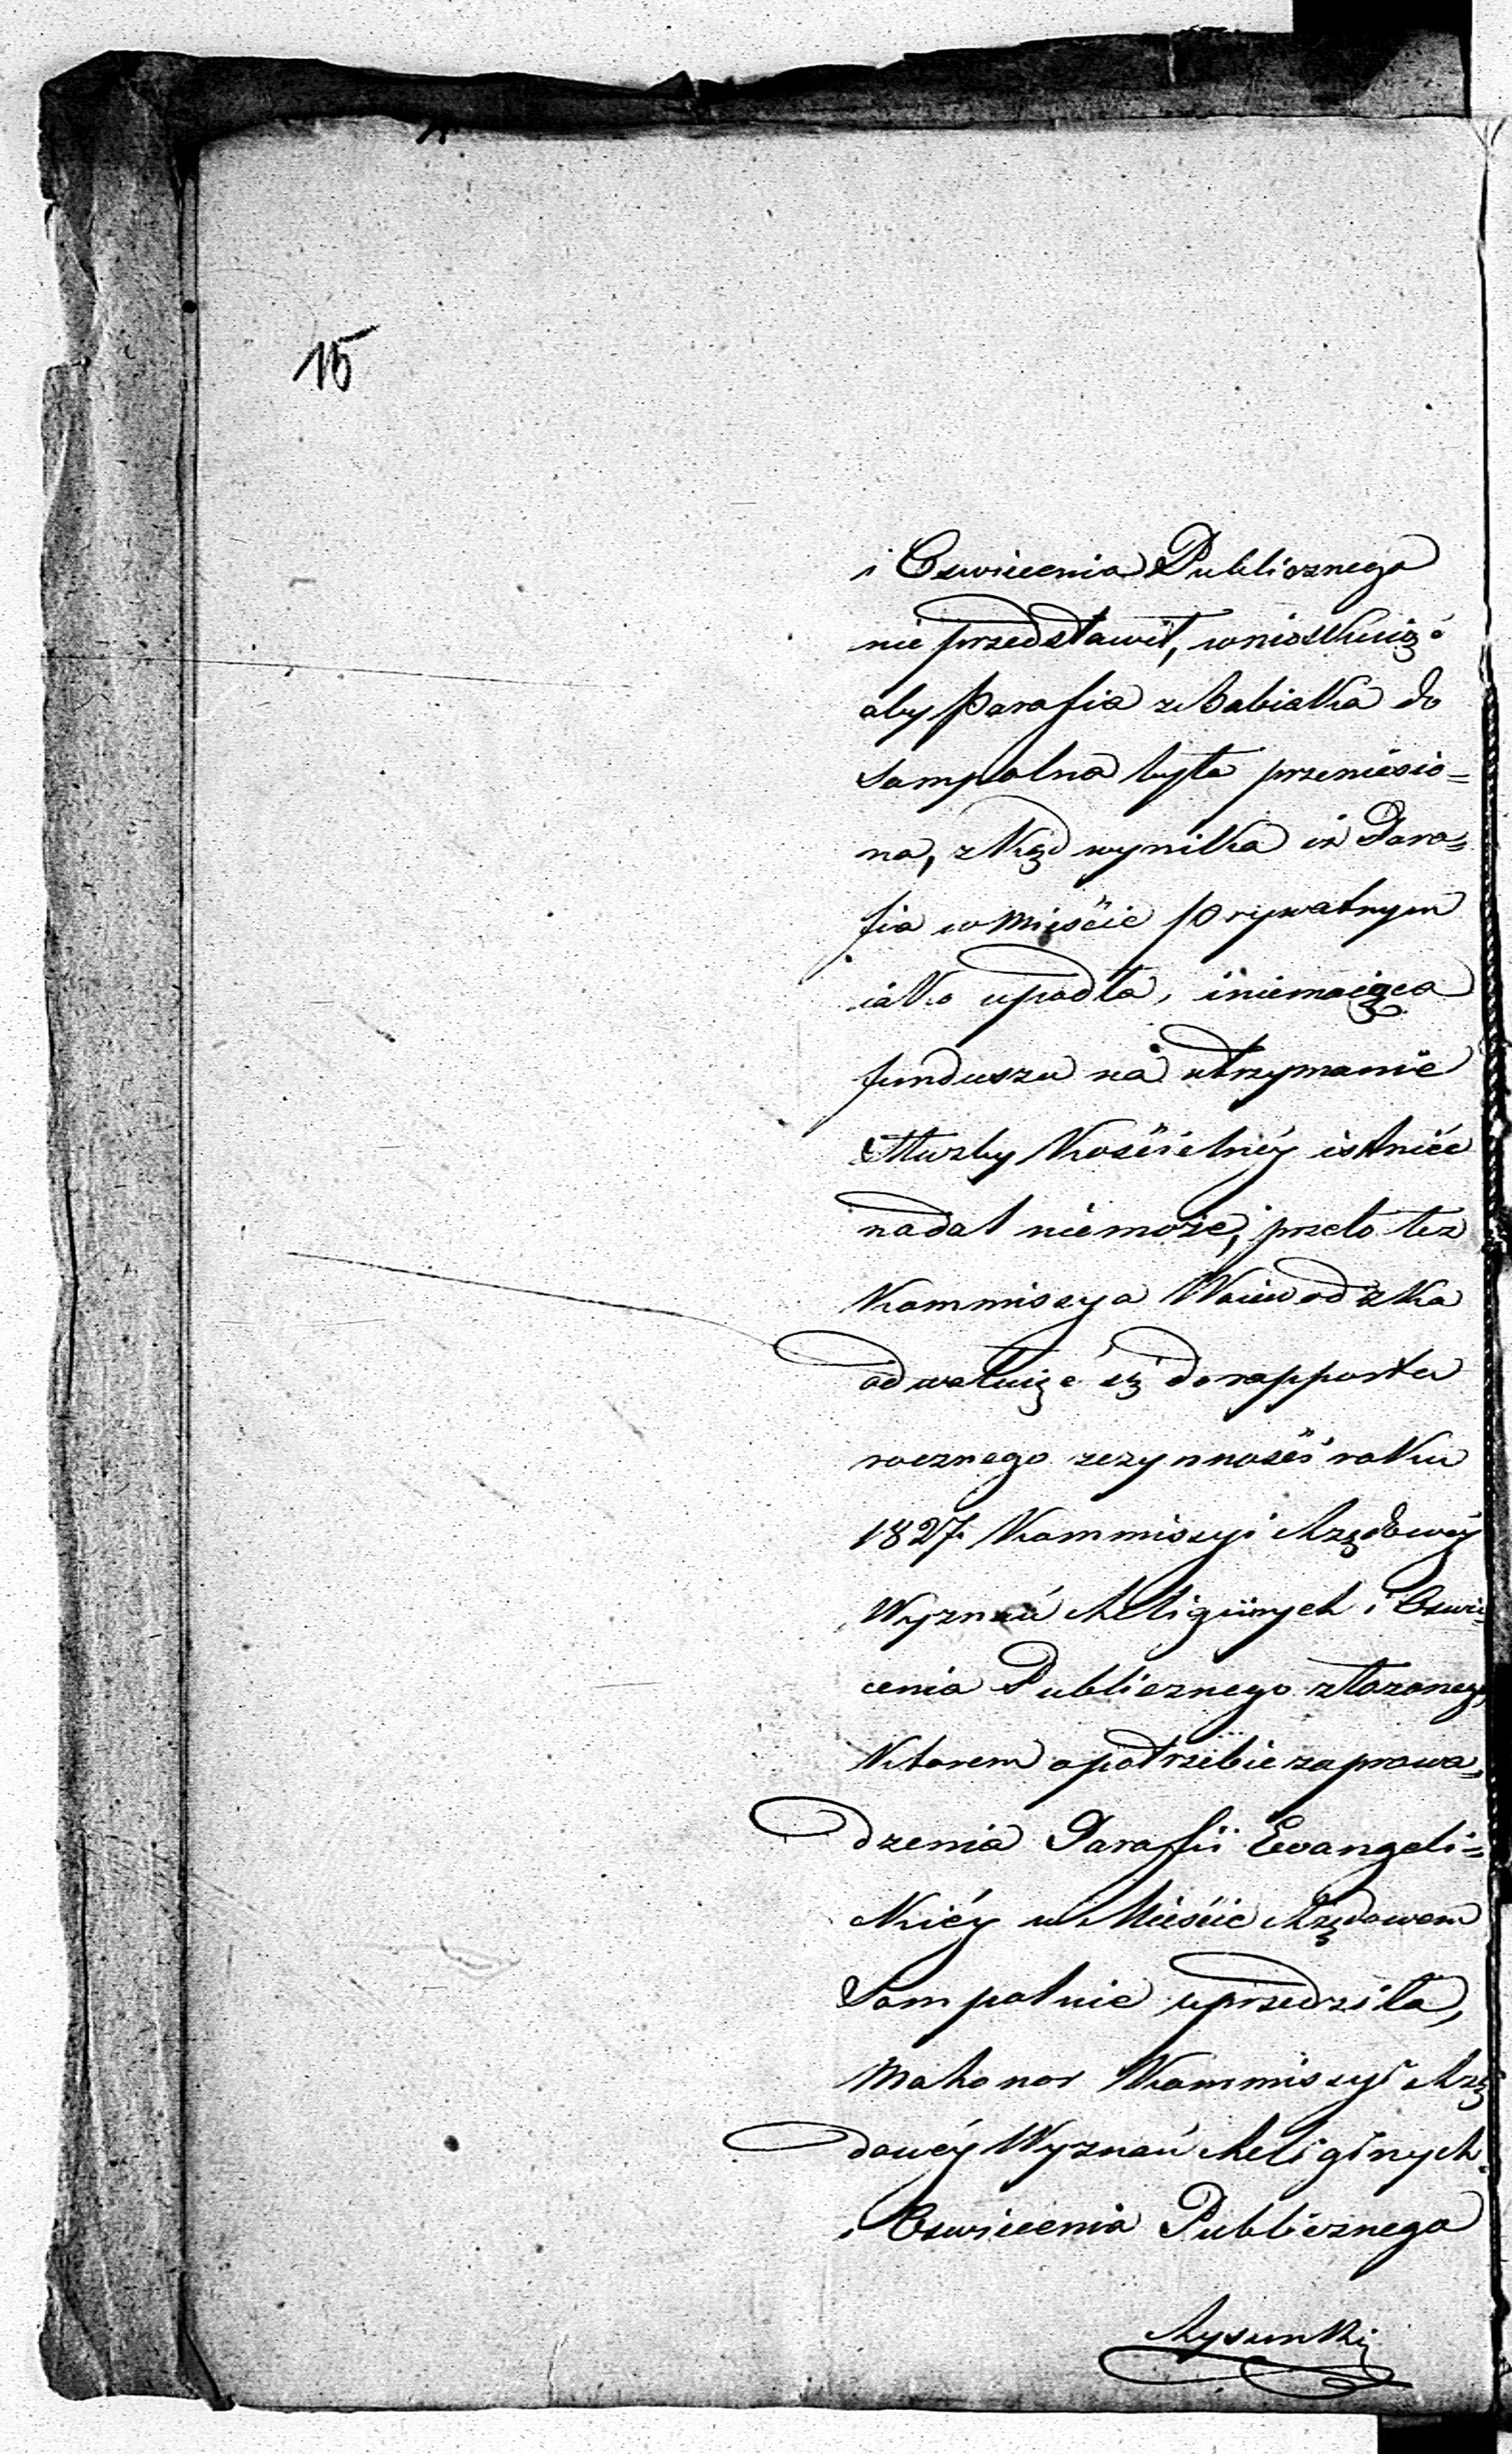 15
i Oswiecenia Publicznego
nie przedstawił, wnioskuiąc
aby Parafia z Babiaka do
Sompolna była przeniesio=
na, zkąd wynika iż Para=
fia w Mieście prywatnym
iako upadła, i niemaiąca
funduszu na utrzymanie
Służby Kościelnéy istnieć
nadal niemoże, przeto też
Kommissya Woiewodzka
odwołuiąc się do rapportu
rocznego z czynności roku
1827 Kommissyi Rządowéy
Wyznań Religiinych i Oswie=
cenia Publicznego złożonego,
którem o potrzebie zaprowa=
dzenia Parafii Ewangeli=
ckiéy w Mieście Rządowem
Sompolnie uprzedziła,
Ma honor Kommissyi Rzą
dowéy Wyznań Religinych
i Oswiecenia Publicznego
Rysunki